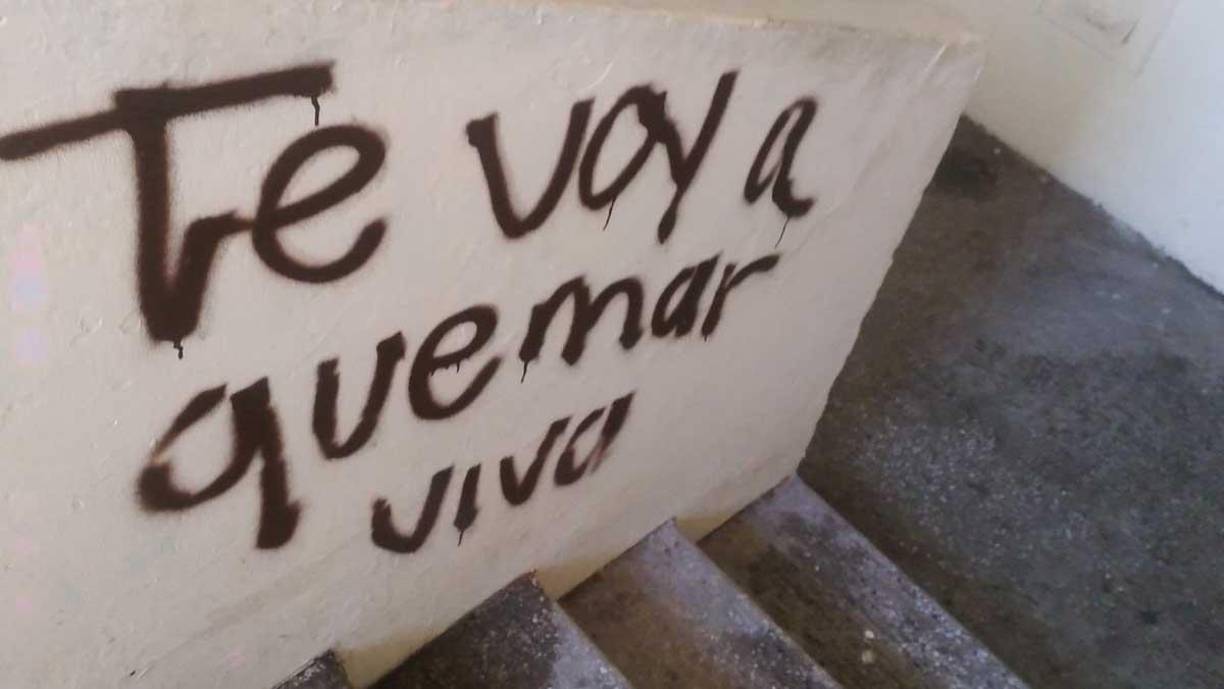 Te voy a
quemar
viva